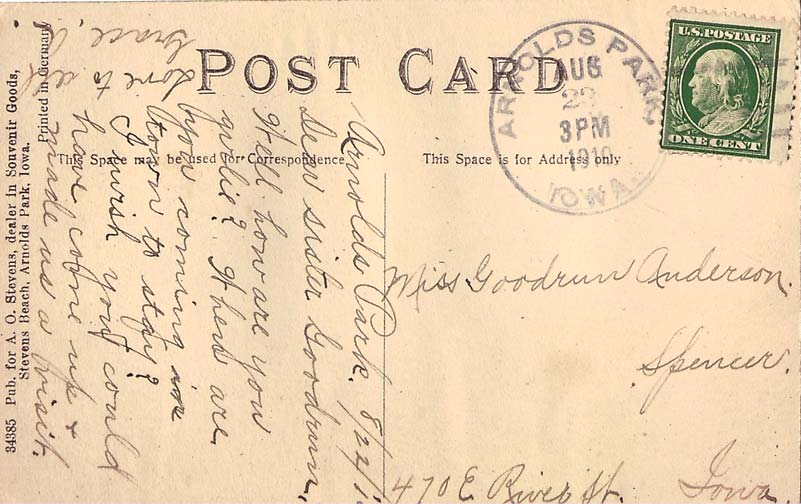 POST CARD
This Space may be used for Correspondence
This Space is for Address only
34385 Pub. for A. O. Stevens, dealer in Souvenir Goods,
Stevens Beach, Arnolds Park, Iowa.
Printed in Germany
ARNOLDS PARK,
AUG
23
3PM
1910
IOWA
U.S. POSTAGE
ONE CENT
Arnolds Park. 8/22/1
Dear sister Goodrun,
Well how are you
When are
you coming in
town to stay?
I wish you could
have come up &
made us a visit.
Love to all
Grace.
Miss Goodrun Anderson.
Spencer.
470 E. River St. Iowa.